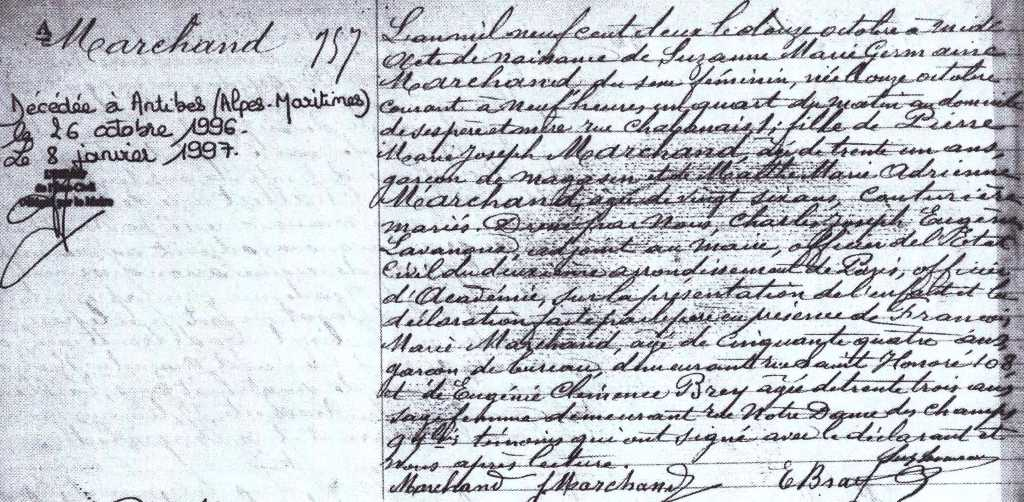 Marchand 757
Décédée à Antibes (Alpes-Maritimes)
le 26 octobre 1996.
Le 8 janvier 1997.
L'an mil neuf cent deux le douze octobre à midi
Acte de naissance de Suzanne Marie Germaine
Marchand, du sexe féminin, née le onze octobre
courant à neuf heures un quart du matin au domicile
de ses père et mère rue Chabanais 1; fille de Pierre
Marie Joseph Marchand, âgé de trente un ans,
garçon de magasin et de Marthe Marie Adrienne
Marchand, âgée de vingt six ans, couturière
mariés. Dressé par Nous, Charles Joseph Eugène
adjoint au maire, officier de l'Etat
Civil du deuxième arrondissement de Paris, officier
d'Académie, sur la présentation de l'enfant et la
déclaration faite par le père en présence de François
Marie Marchand, âgé de cinquante quatre ans
garçon de bureau, demeurant rue Saint Honoré 108,
et de Eugénie Clémence Brey âgée de trente trois ans
sage femme demeurant rue Notre Dame des Champs
témoins qui ont signé avec le déclarant et
nous après lecture.
Marchand J Marchand E Bray